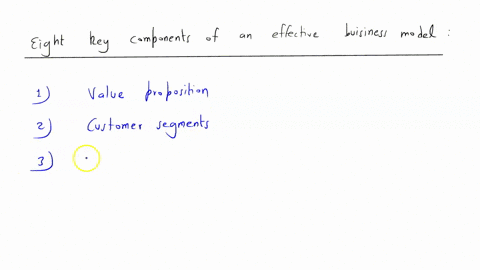 Eight key components of an effective buisiness model :
1) Value proposition
2) Customer segments
3)